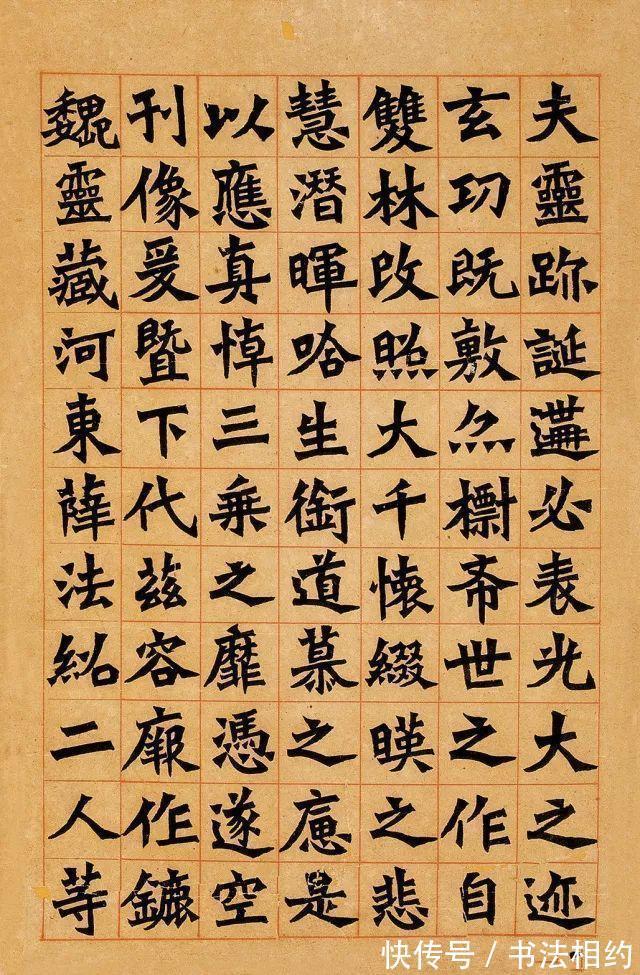 夫靈跡誕遘必表光大之迹
玄功既敷亦櫯希世之作自
雙林改照大千懐綴暎之悲
慧潛暉唅生銜道慕之是
以應真悼三乗之靡憑遂空
刊像爰暨下代茲容厥作鏕
魏靈藏河東薛法紹二人等
快传号/书法相约